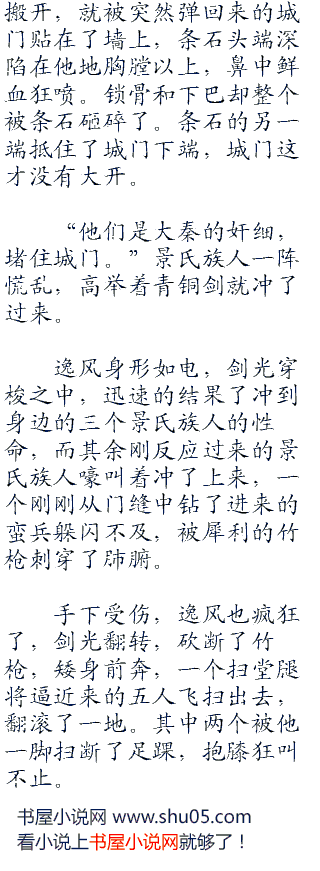 搬开，就被突然弹回来的城
门贴在了墙上，条石头端深
陷在他地胸膛以上，鼻中鲜
血狂喷。锁骨和下巴却整个
被条石砸碎了。条石的另一
端抵住了城门下端，城门这
才没有大开。
“他们是大秦的奸细，
堵住城门。”景氏族人一阵
慌乱，高举着青铜剑就冲了
过来。
逸风身形如电，剑光穿
梭之中，迅速的结果了冲到
身边的三个景氏族人的性
命，而其余刚反应过来的景
氏族人嚎叫着冲了上来，一
个刚刚从门缝中钻了进来的
蛮兵躲闪不及，被犀利的竹
枪刺穿了肺腑。
手下受伤，逸风也疯狂
了，剑光翻转，砍断了竹
枪，矮身前奔，一个扫堂腿
将逼近来的五人飞扫出去，
翻滚了一地。其中两个被他
一脚扫断了足踝，抱膝狂叫
不止。
书屋小说网 www.shu05.com
看小说上书屋小说网就够了！